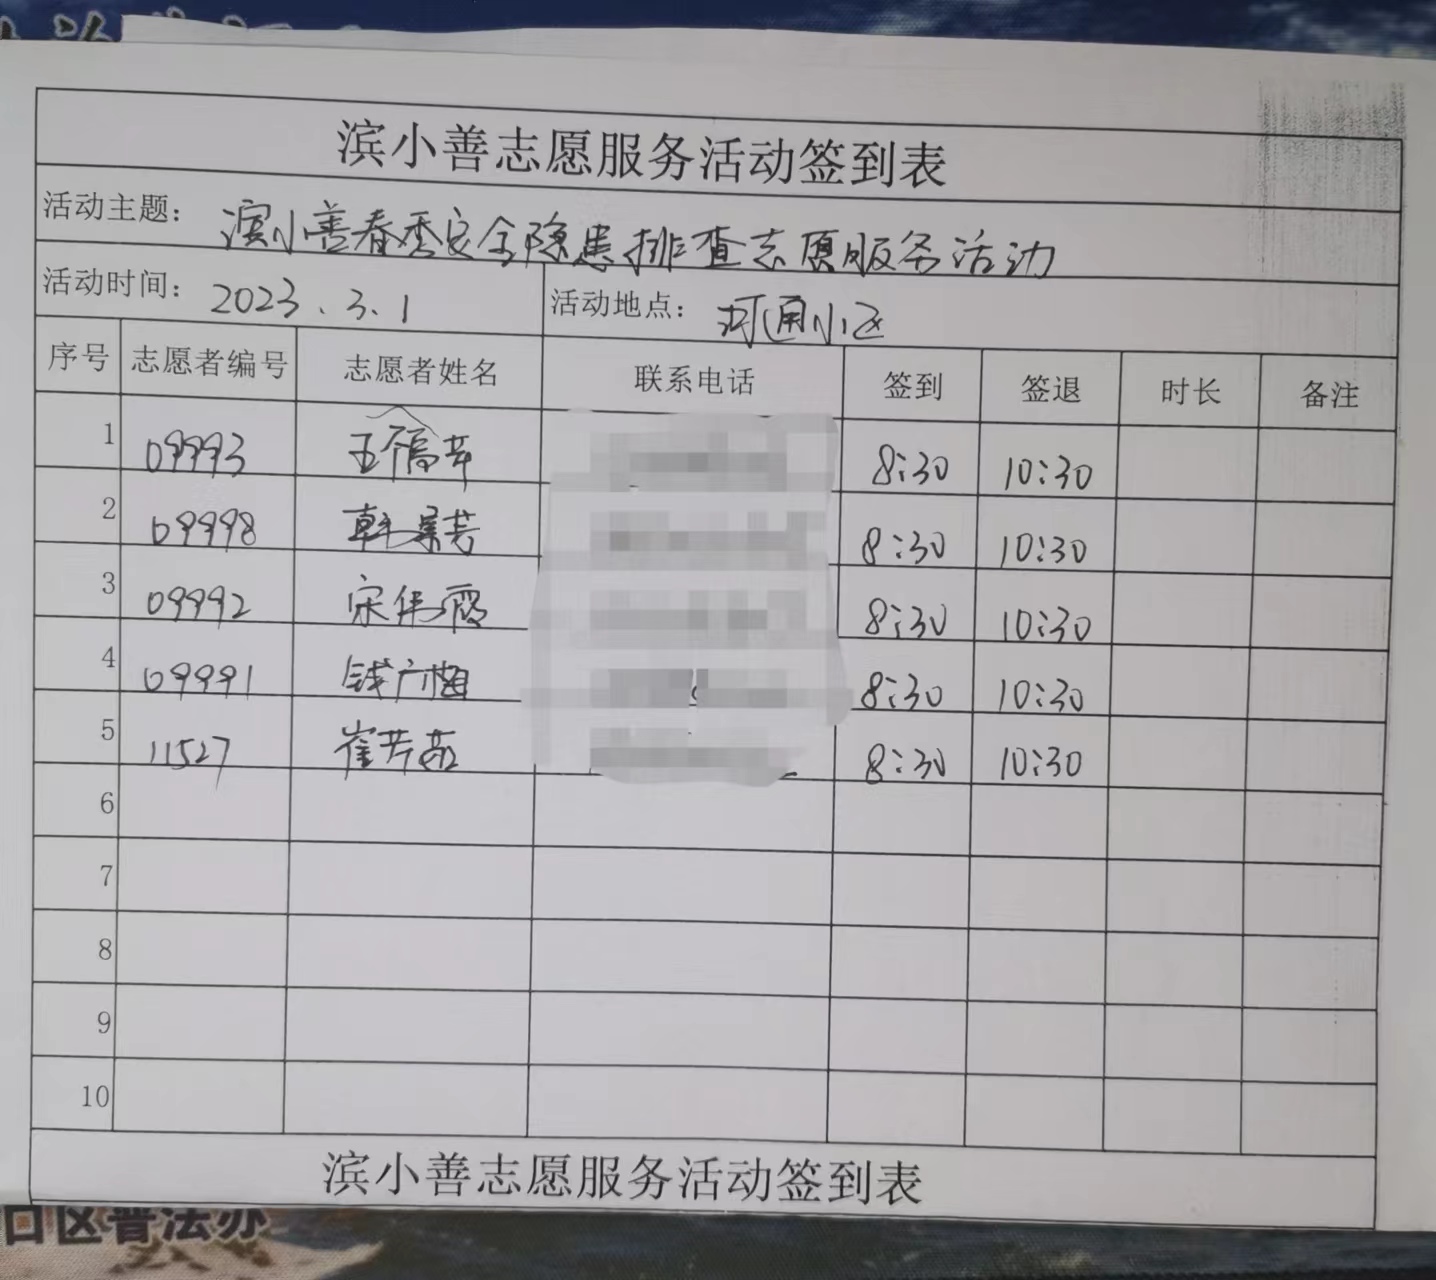 滨小善志愿服务活动签到表
活动主题： 滨小善春季安全隐患排查志愿服务活动
活动时间： 2023.3.1 活动地点： 河通小区
序号 志愿者编号 志愿者姓名 联系电话 签到 签退 时长 备注
1 09993 8:30 10:30
2 09998 韩景芳 8:30 10:30
3 09992 宋伟霞 8:30 10:30
4 09991 钱广梅 8:30 10:30
5 11527 崔芳茹 8:30 10:30
6
7
8
9
10
滨小善志愿服务活动签到表
口区普法办